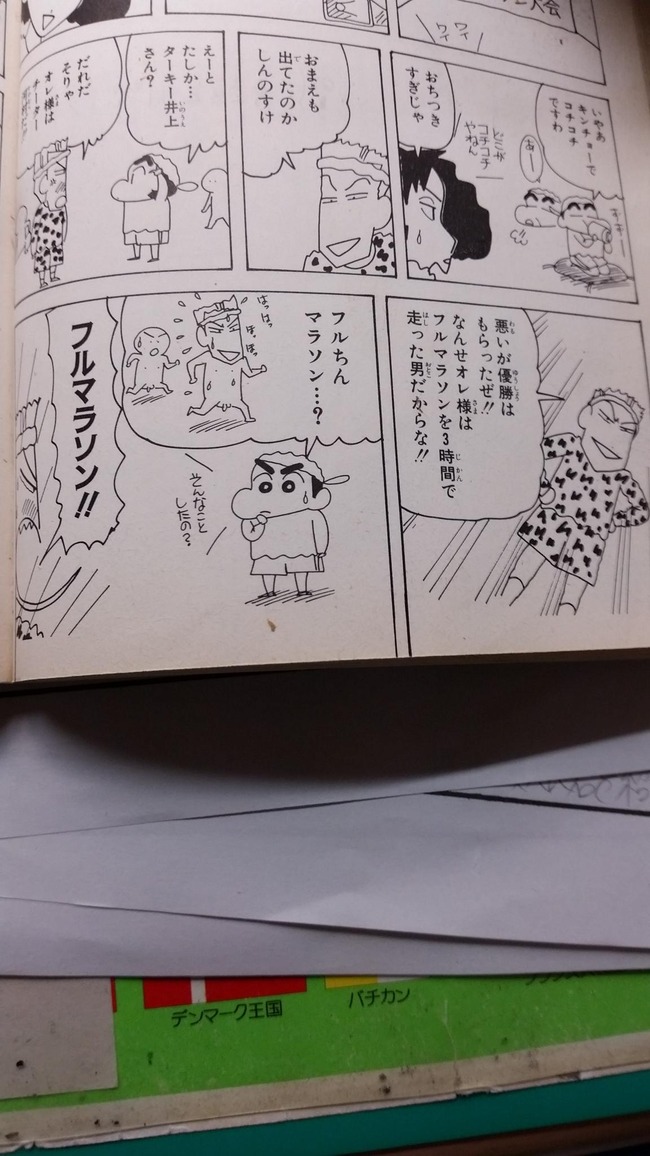 大会
ワイ
ワイ
いやぁ
キンチョーで
コチコチ
ですわ
あー
ずずー
どこが
コチコチ
やねん
おちつき
すぎじゃ
おまえも
出てたのか
しんのすけ
えーと
たしか…
ターキー井上
さん?
だれだ
そりゃ
オレ様は
チーター
悪いが優勝は
もらったぜ!!
なんせオレ様は
フルマラソンを3時間で
走った男だからな!!
フルちん
マラソン…?
はっはっ
ほっほっ
そんなこと
したの?
フルマラソン!!
デンマーク王国
バチカン